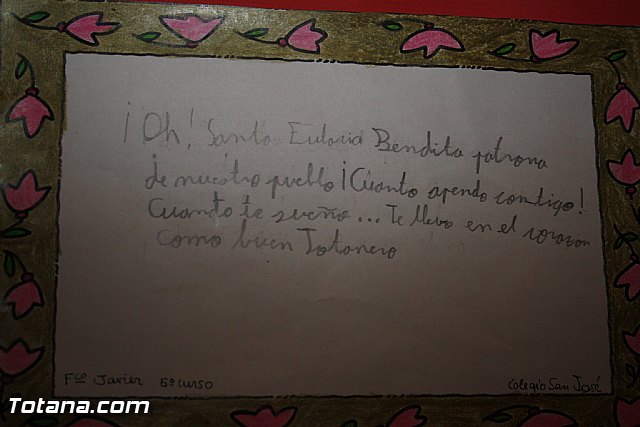 ¡Oh! Santa Eularia Bendita patrona
de nuestro pueblo ¡Cuanto apendo contigo!
Cuando te sueño... Te llevo en el corazon
como buen Totanero
Fco Javier 5º curso
Colegio San José
Totana.com